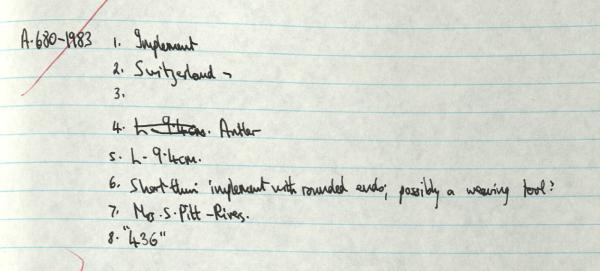 A.680-1983 1. Implement
2. Switzerland
3.
4. L-9.4cm. Antler
5. L-9.4cm.
6. Short thin implement with rounded ends; possibly a weaving tool?
7. Mrs. S. Pitt-Rivers.
8. "436"